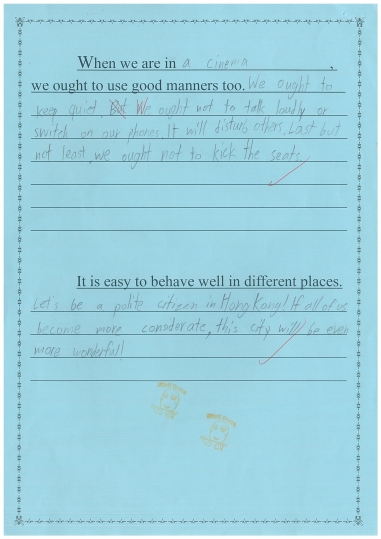 When we are in a cinema,
we ought to use good manners too. We ought to
keep quiet. But We ought not to talk loudly or
switch on our phones. It will disturb others. Last but
not least, we ought not to kick the seats.
It is easy to behave well in different places.
Let's be a polite citizen in Hong Kong! If all of us
become more considerate, this city will be even
more wonderful!